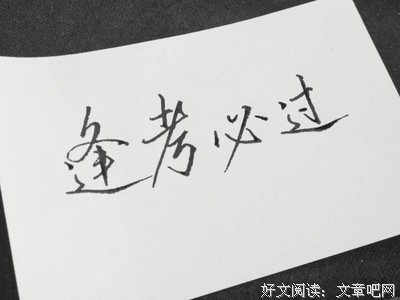 逢考必过
好文阅读：文章吧网